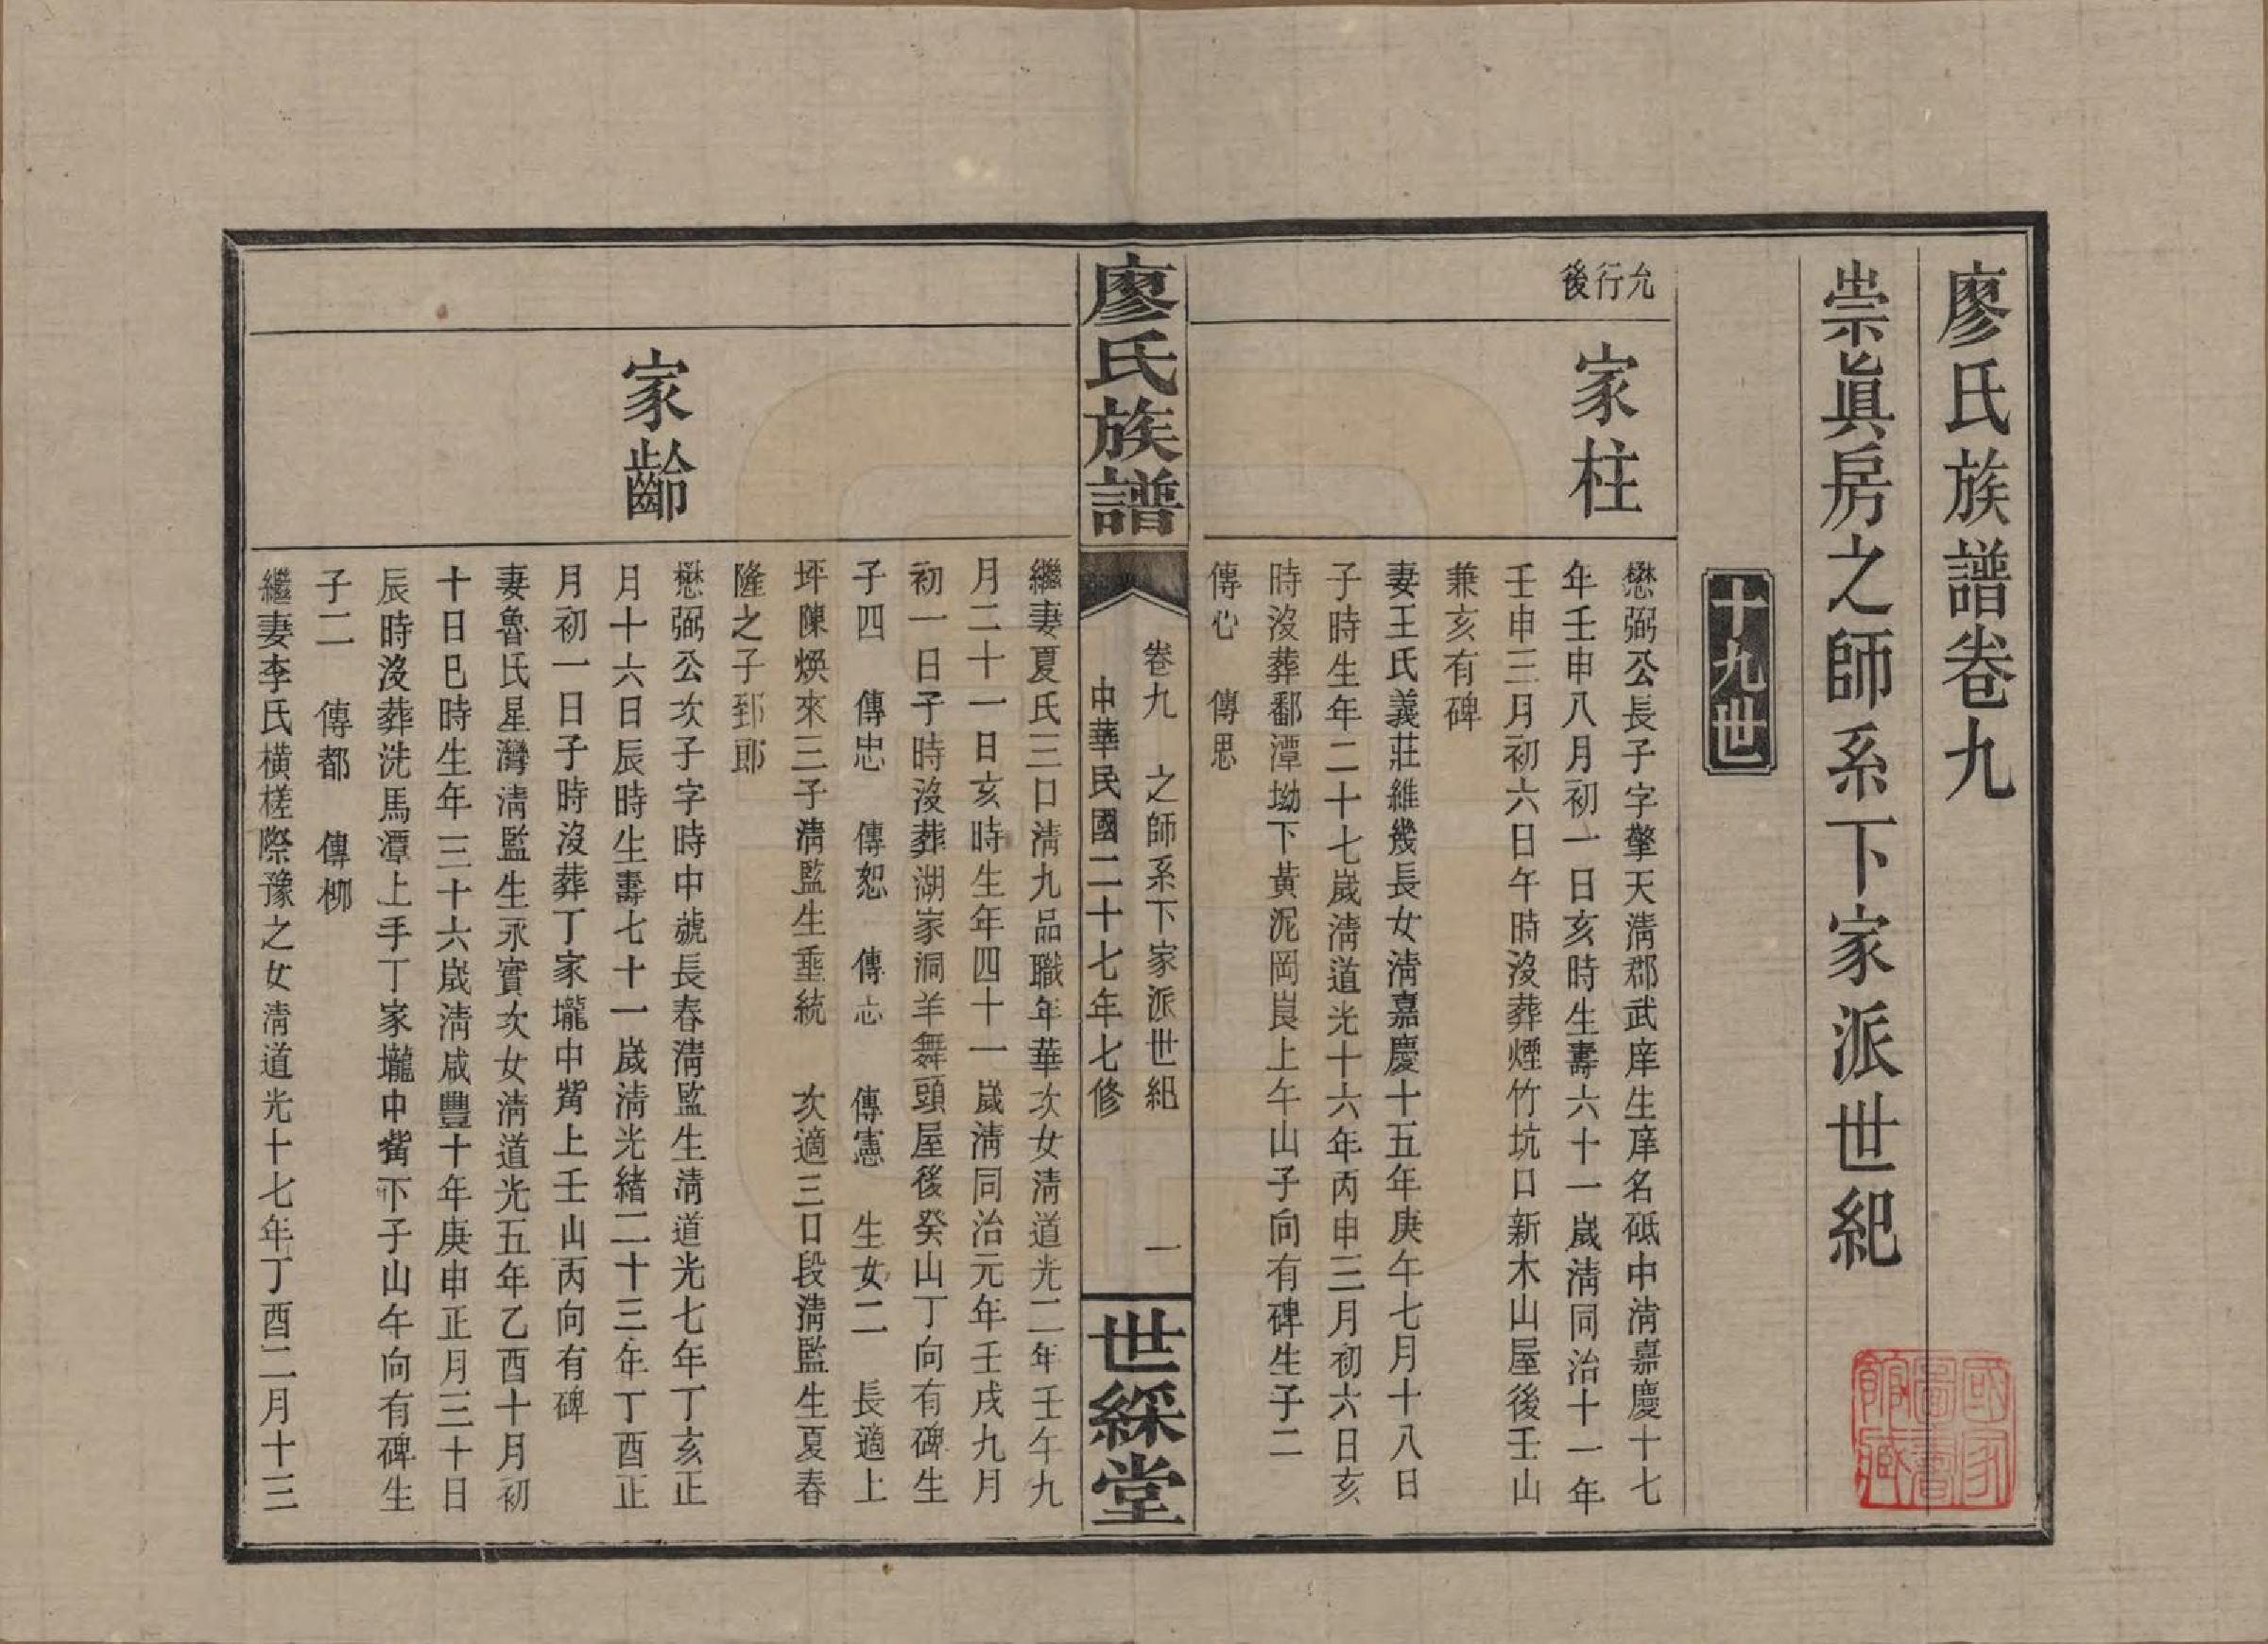 廖氏族譜卷九
崇眞房之師系下家派世紀
十九世
允行後
家柱
懋弼公長子字擎天淸郡武庠生庠名砥中淸嘉慶十七
年壬申八月初一日亥時生壽六十一歲淸同治十一年
壬申三月初六日午時沒葬煙竹坑口新木山屋後壬山
兼亥有碑
妻王氏義莊維幾長女淸嘉慶十五年庚午七月十八日
子時生年二十七歲淸道光十六年丙申三月初六日亥
時沒葬鄱潭坳下黃泥岡崀上午山子向有碑生子二
傳心　傳思
廖氏族譜
卷九　之師系下家派世紀　一
中華民國二十七年七修
世綵堂
繼妻夏氏三口淸九品職年華次女淸道光二年壬午九
月二十一日亥時生年四十一歲淸同治元年壬戌九月
初一日子時沒葬湖家洞羊舞頭屋後癸山丁向有碑生
子四　傳忠　傳恕　傳志　傳憲　生女二　長適上
坪陳煥來三子淸監生垂統　次適三口段淸監生夏春
隆之子郅郎
家齡
懋弼公次子字時中號長春淸監生淸道光七年丁亥正
月十六日辰時生壽七十一歲淸光緒二十三年丁酉正
月初一日子時沒葬丁家壠中嘴上壬山丙向有碑
妻魯氏星灣淸監生永實次女淸道光五年乙酉十月初
十日巳時生年三十六歲淸咸豐十年庚申正月三十日
辰時沒葬洗馬潭上手丁家壠中嘴下子山午向有碑生
子二　傳都　傳柳
繼妻李氏橫槎際豫之女淸道光十七年丁酉二月十三
國家圖書館藏